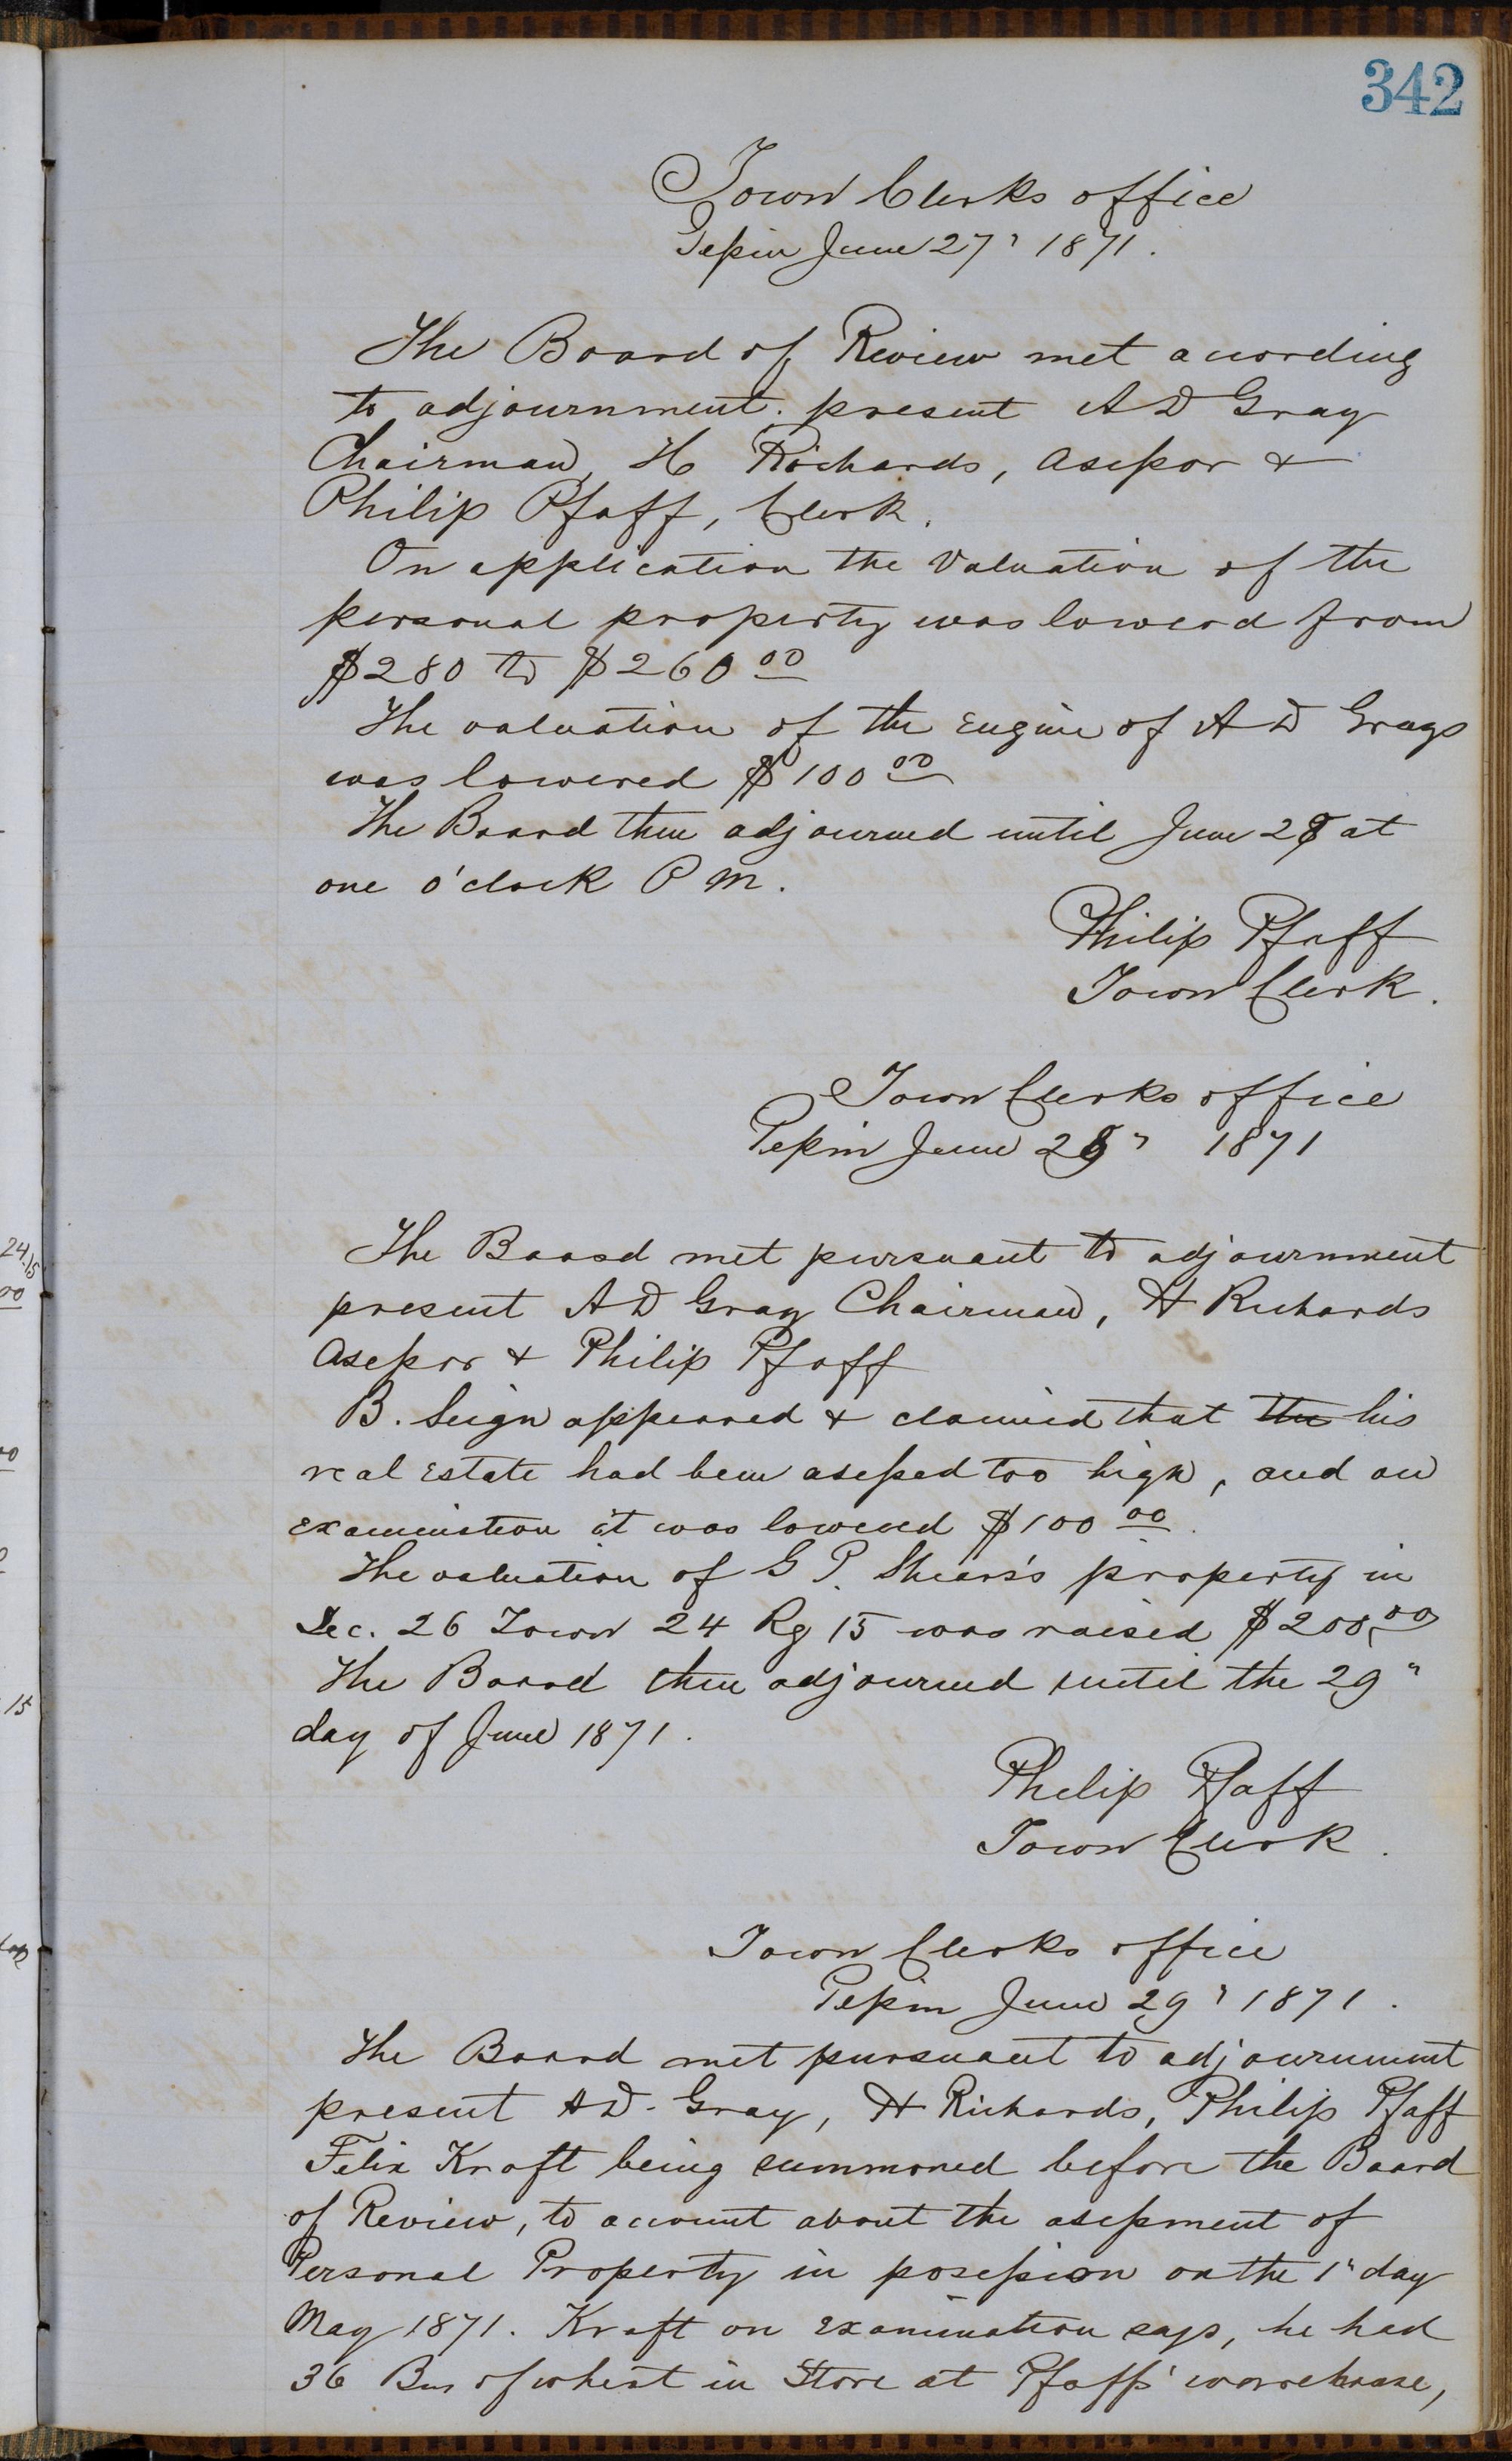 342
Town Clerks office
Pepin June 27" 1871.
The Board of Review met acording
to adjournment. present A D Gray
Chairman, H Richards, Asessor &
Philip Pfaff, Clerk.
On application the valuation of the
personal property was lowerd from
$280 to $260 00
The valuation of the Engine of A D Grays
was lowered $100 00
The Board then adjourned until June 28 at
one o'clock P M.
Philip Pfaff
Town Clerk.
Town Clerks office
Pepin June 28" 1871
The Board met pursuant to adjournment
present A D Gray Chairman, H Richards
Asessor & Philip Pfaff
B. Seign appeared & claimed that the his
real Estate had been asessed too high, and on
examination it was lowered $100 00.
The valuation of G P. Shears's property in
Sec. 26 Town 24 Rg 15 was raised $200,00
The Board then adjourned until the 29"
day of June 1871.
Philip Pfaff
Town Clerk.
Town Clerks office
Pepin June 29" 1871.
The Board met pursuant to adjournment
present A D. Gray, H Richards, Philip Pfaff
Felix Kraft being summoned before the Board
of Review, to account about the asessment of
Personal Property in posession on the 1" day
May 1871. Kraft on Examination says, he had
36 Bus of wheat in Store at Pfaffs' warehouse,